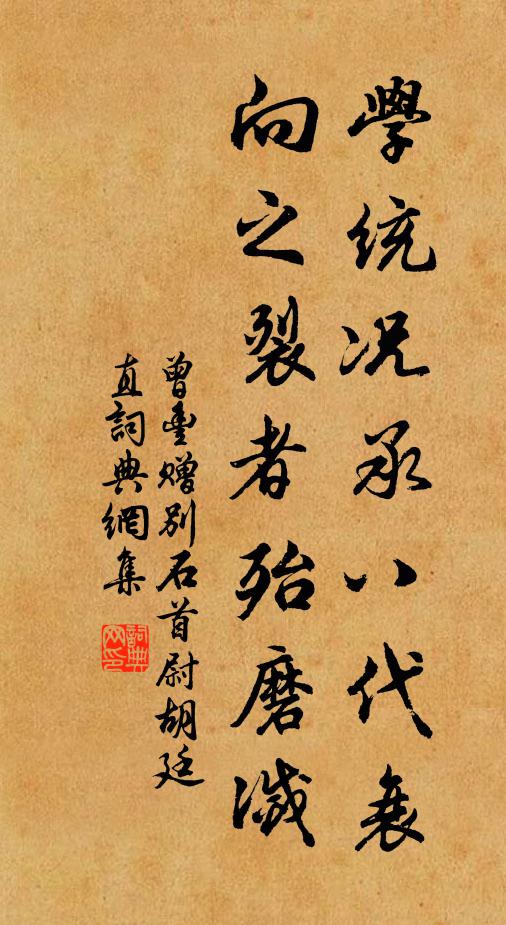 學統況承八代衰
向之裂者殆磨滅
曾豐贈別石首尉胡廷
直詞典網集
詞典
网印